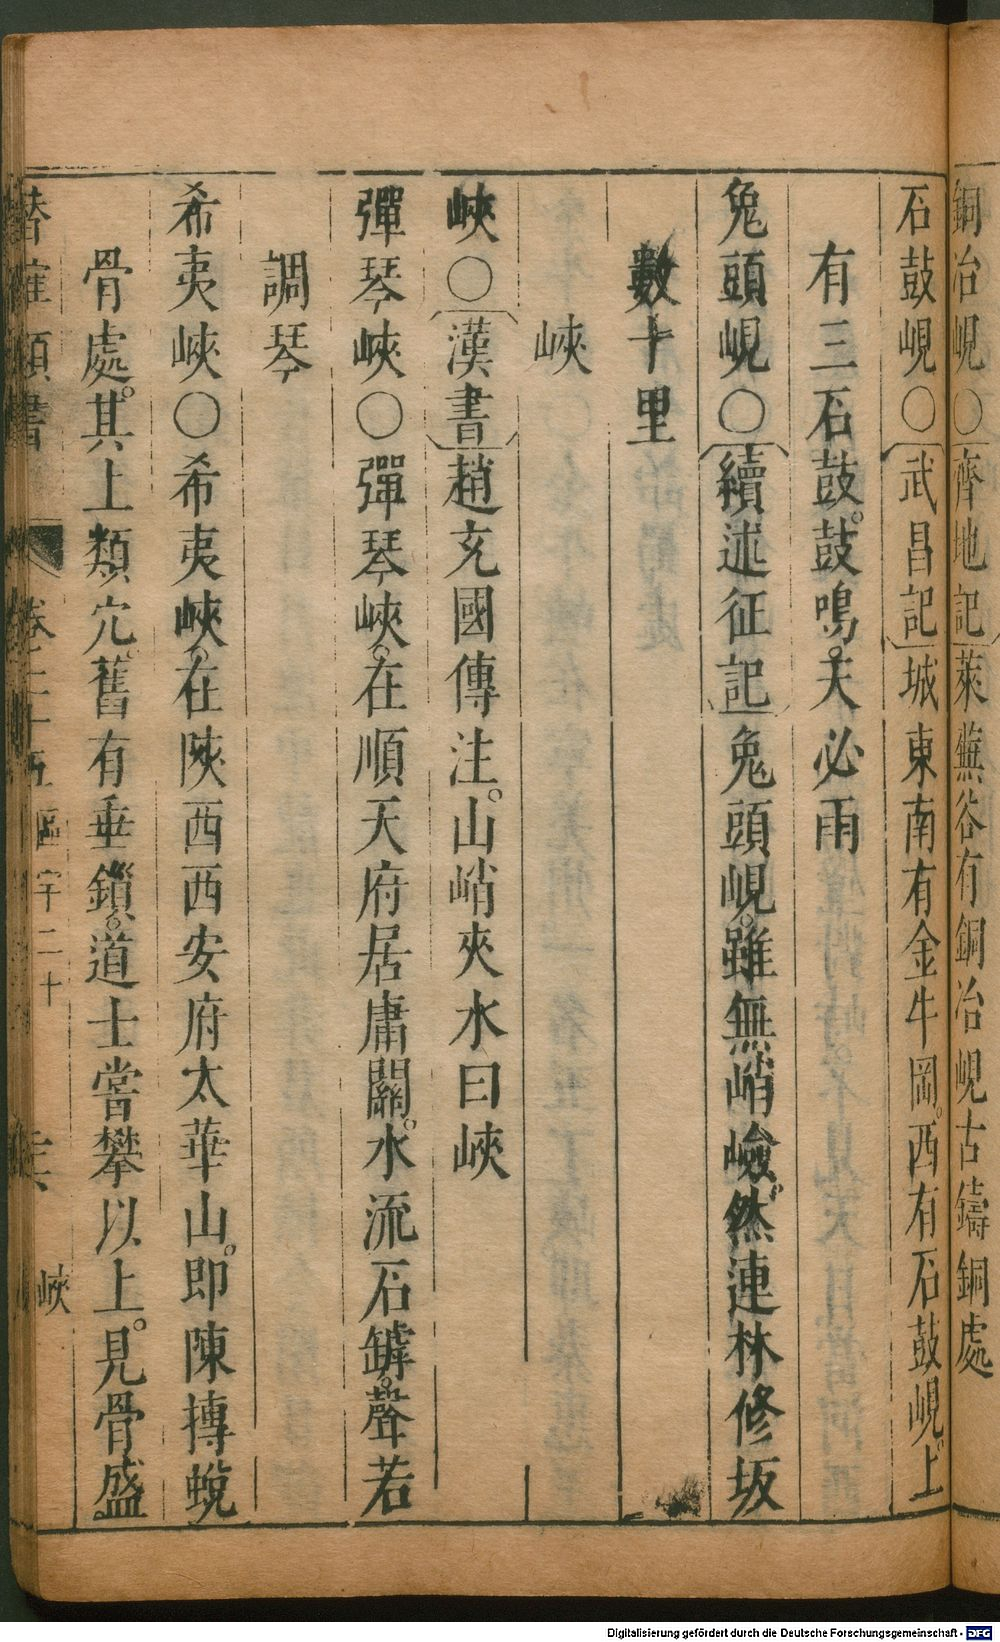 銅冶峴○〔齊地記〕萊蕪谷有銅冶峴古鑄銅處
石鼓峴○〔武昌記〕城東南有金牛岡。西有石鼓峴。上
有三石鼓。鼓鳴。天必雨
兔頭峴○〔續述征記〕兔頭峴。雖無峭嶮。然連林修坂
數十里
峽
峽○〔漢書〕趙充國傳注。山峭夾水曰峽
彈琴峽○彈琴峽。在順天府居庸關。水流石罅。聲若
調琴
希夷峽○希夷峽。在陝西西安府太華山。即陳摶蛻
骨處。其上類穴。舊有垂鎖。道士嘗攀以上。見骨盛
潛確類書 卷二十五 區宇二十 峽
Digitalisierung gefördert durch die Deutsche Forschungsgemeinschaft - DFG